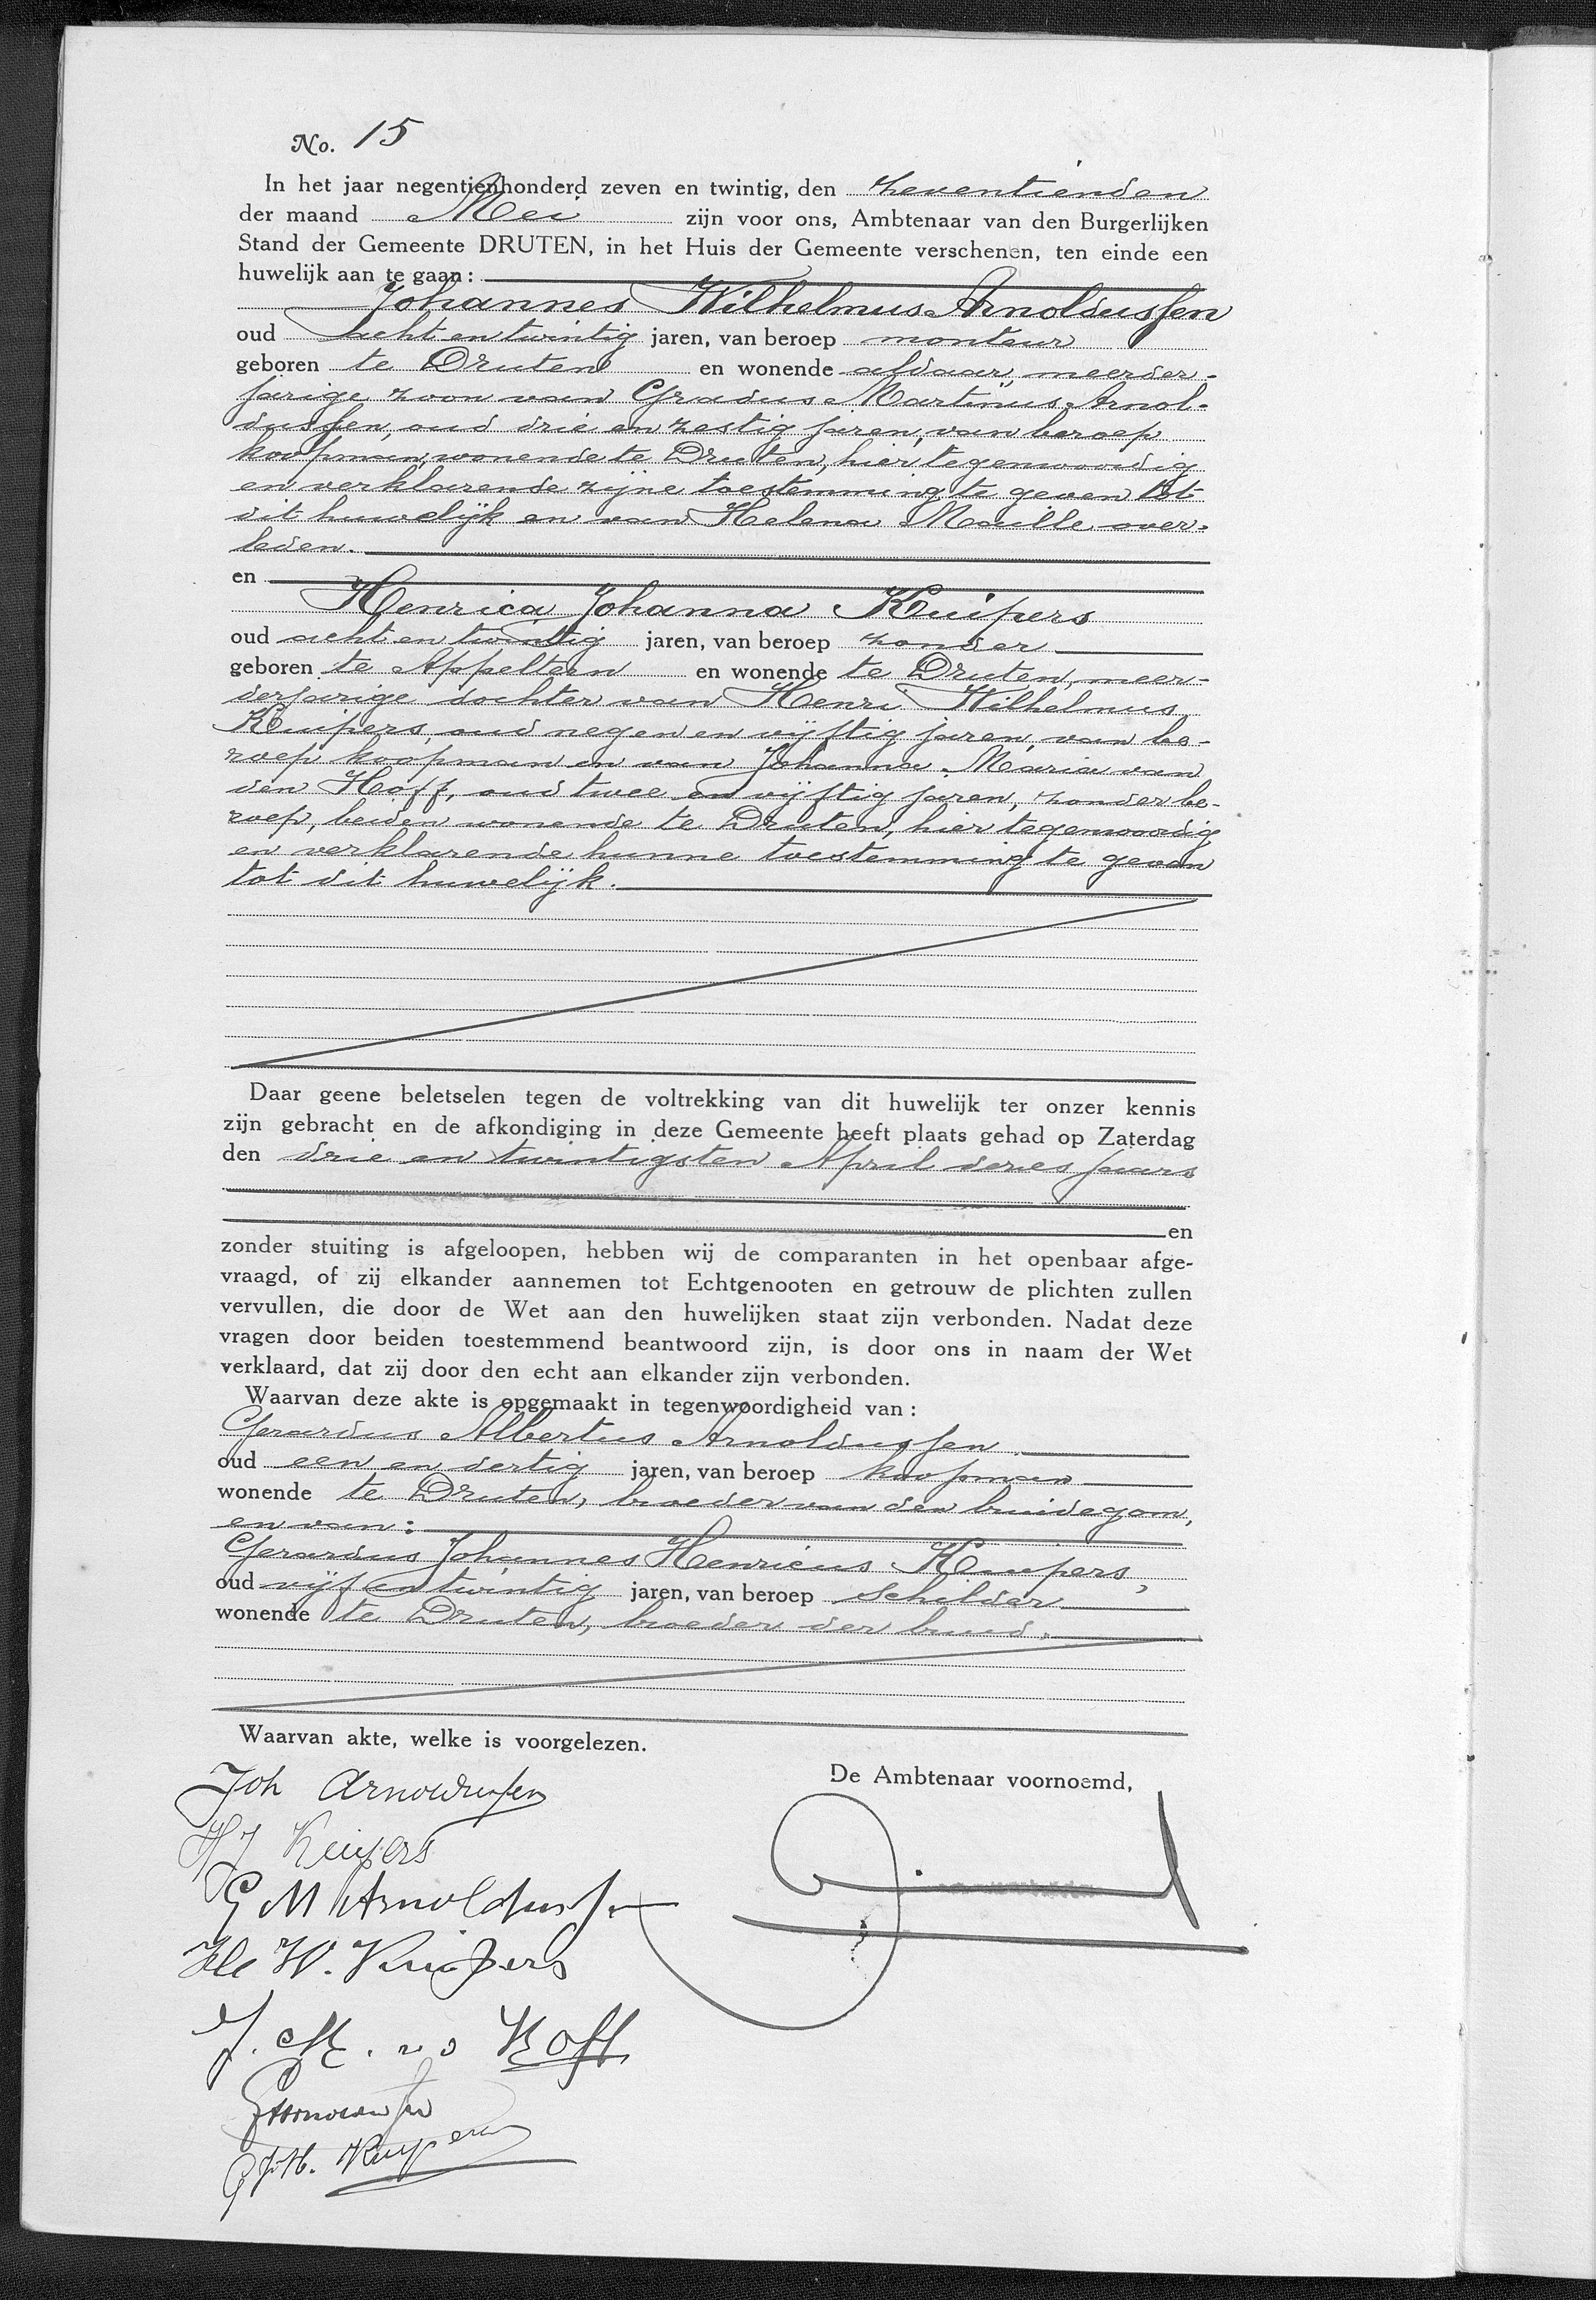 No. 15
In het jaar negentienhonderd zeven en twintig, den zeventienden
der maand Mei zijn voor ons, Ambtenaar van den Burgerlijken
Stand der Gemeente DRUTEN, in het Huis der Gemeente verschenen, ten einde een
huwelijk aan te gaan:
Johannes Wilhelmus Arnoldussen
oud acht en twintig jaren, van beroep monteur
geboren te Druten en wonende aldaar, meerder-
jarige zoon van Gradus Martinus Arnol-
dussen, oud drie en zestig jaren, van beroep
koopman, wonende te Druten, hier tegenwoordig
en verklarende zijne toestemming te geven tot
dit huwelijk en van Helena Maille over-
leden.
en
Henrica Johanna Kuipers
oud acht en twintig jaren, van beroep zonder
geboren te Appeltern en wonende te Druten, meer-
derjarige dochter van Henri Wilhelmus
Kuipers, oud negen en vijftig jaren, van be-
roep koopman en van Johanna Maria van
den Hoff, oud twee en vijftig jaren, zonder be-
roep, beiden wonende te Druten, hier tegenwoordig
en verklarende hunne toestemming te geven
tot dit huwelijk.
Daar geene beletselen tegen de voltrekking van dit huwelijk ter onzer kennis
zijn gebracht en de afkondiging in deze Gemeente heeft plaats gehad op Zaterdag
den drie en twintigsten April dezes jaars
en
zonder stuiting is afgeloopen, hebben wij de comparanten in het openbaar afge-
vraagd, of zij elkander aannemen tot Echtgenooten en getrouw de plichten zullen
vervullen, die door de Wet aan den huwelijken staat zijn verbonden. Nadat deze
vragen door beiden toestemmend beantwoord zijn, is door ons in naam der Wet
verklaard, dat zij door den echt aan elkander zijn verbonden.
Waarvan deze akte is opgemaakt in tegenwoordigheid van:
Gerardus Albertus Arnoldussen
oud een en dertig jaren, van beroep koopman
wonende te Druten, broeder van den bruidegom,
en van:
Gerardus Johannes Henricus Kuipers,
oud vijf en twintig jaren, van beroep schilder
wonende te Druten, broeder der bruid.
Waarvan akte, welke is voorgelezen.
De Ambtenaar voornoemd,
Joh Arnoldussen
HJ Kuipers
G M Arnoldussen
He W. Kuipers
J. M. v d Hoff
GJH. Kuypers